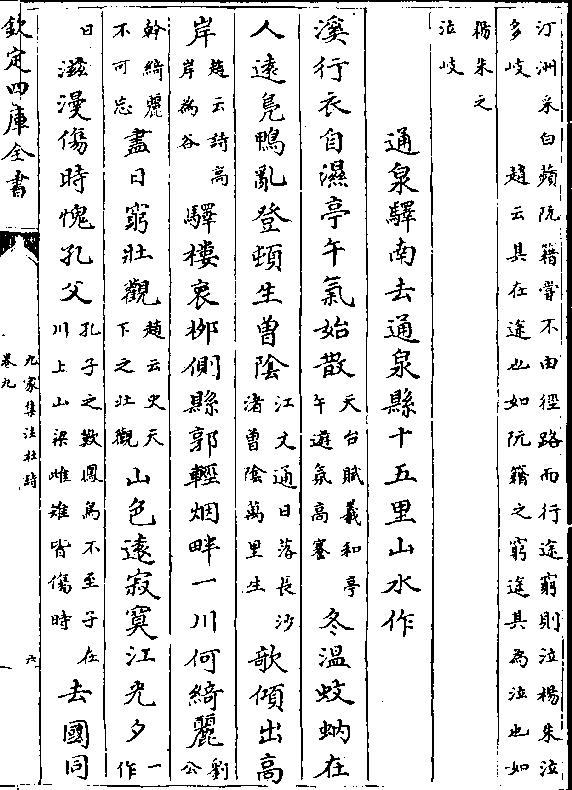 汀洲采白蘋阮籍嘗不由徑路而行途窮則泣楊朱泣
多岐　趙云具在途也如阮籍之窮途具為泣也如
楊朱之
泣岐
通泉驛南去通泉縣十五里山水作
溪行衣自濕亭午氣始散
天台賦羲和亭
午遊氣高褰
冬溫蚊蚋在
人遠鳧鴨亂登頓生曾陰
江文通日落長沙
渚曾陰萬里生
歌傾出高
岸
趙云詩高
岸為谷
驛樓衰柳側縣郭輕烟畔一川何綺麗
劉
公
幹綺麗
不可忘
盡日窮壯觀
趙云史天
下之壯觀
山色遠寂寞江光夕
一
作
日
滋漫傷時愧孔父
孔子之歎鳳鳥不至子在
川上山梁雌雉皆傷時
去國同
欽定四庫全書
九家集注杜詩
卷九
六